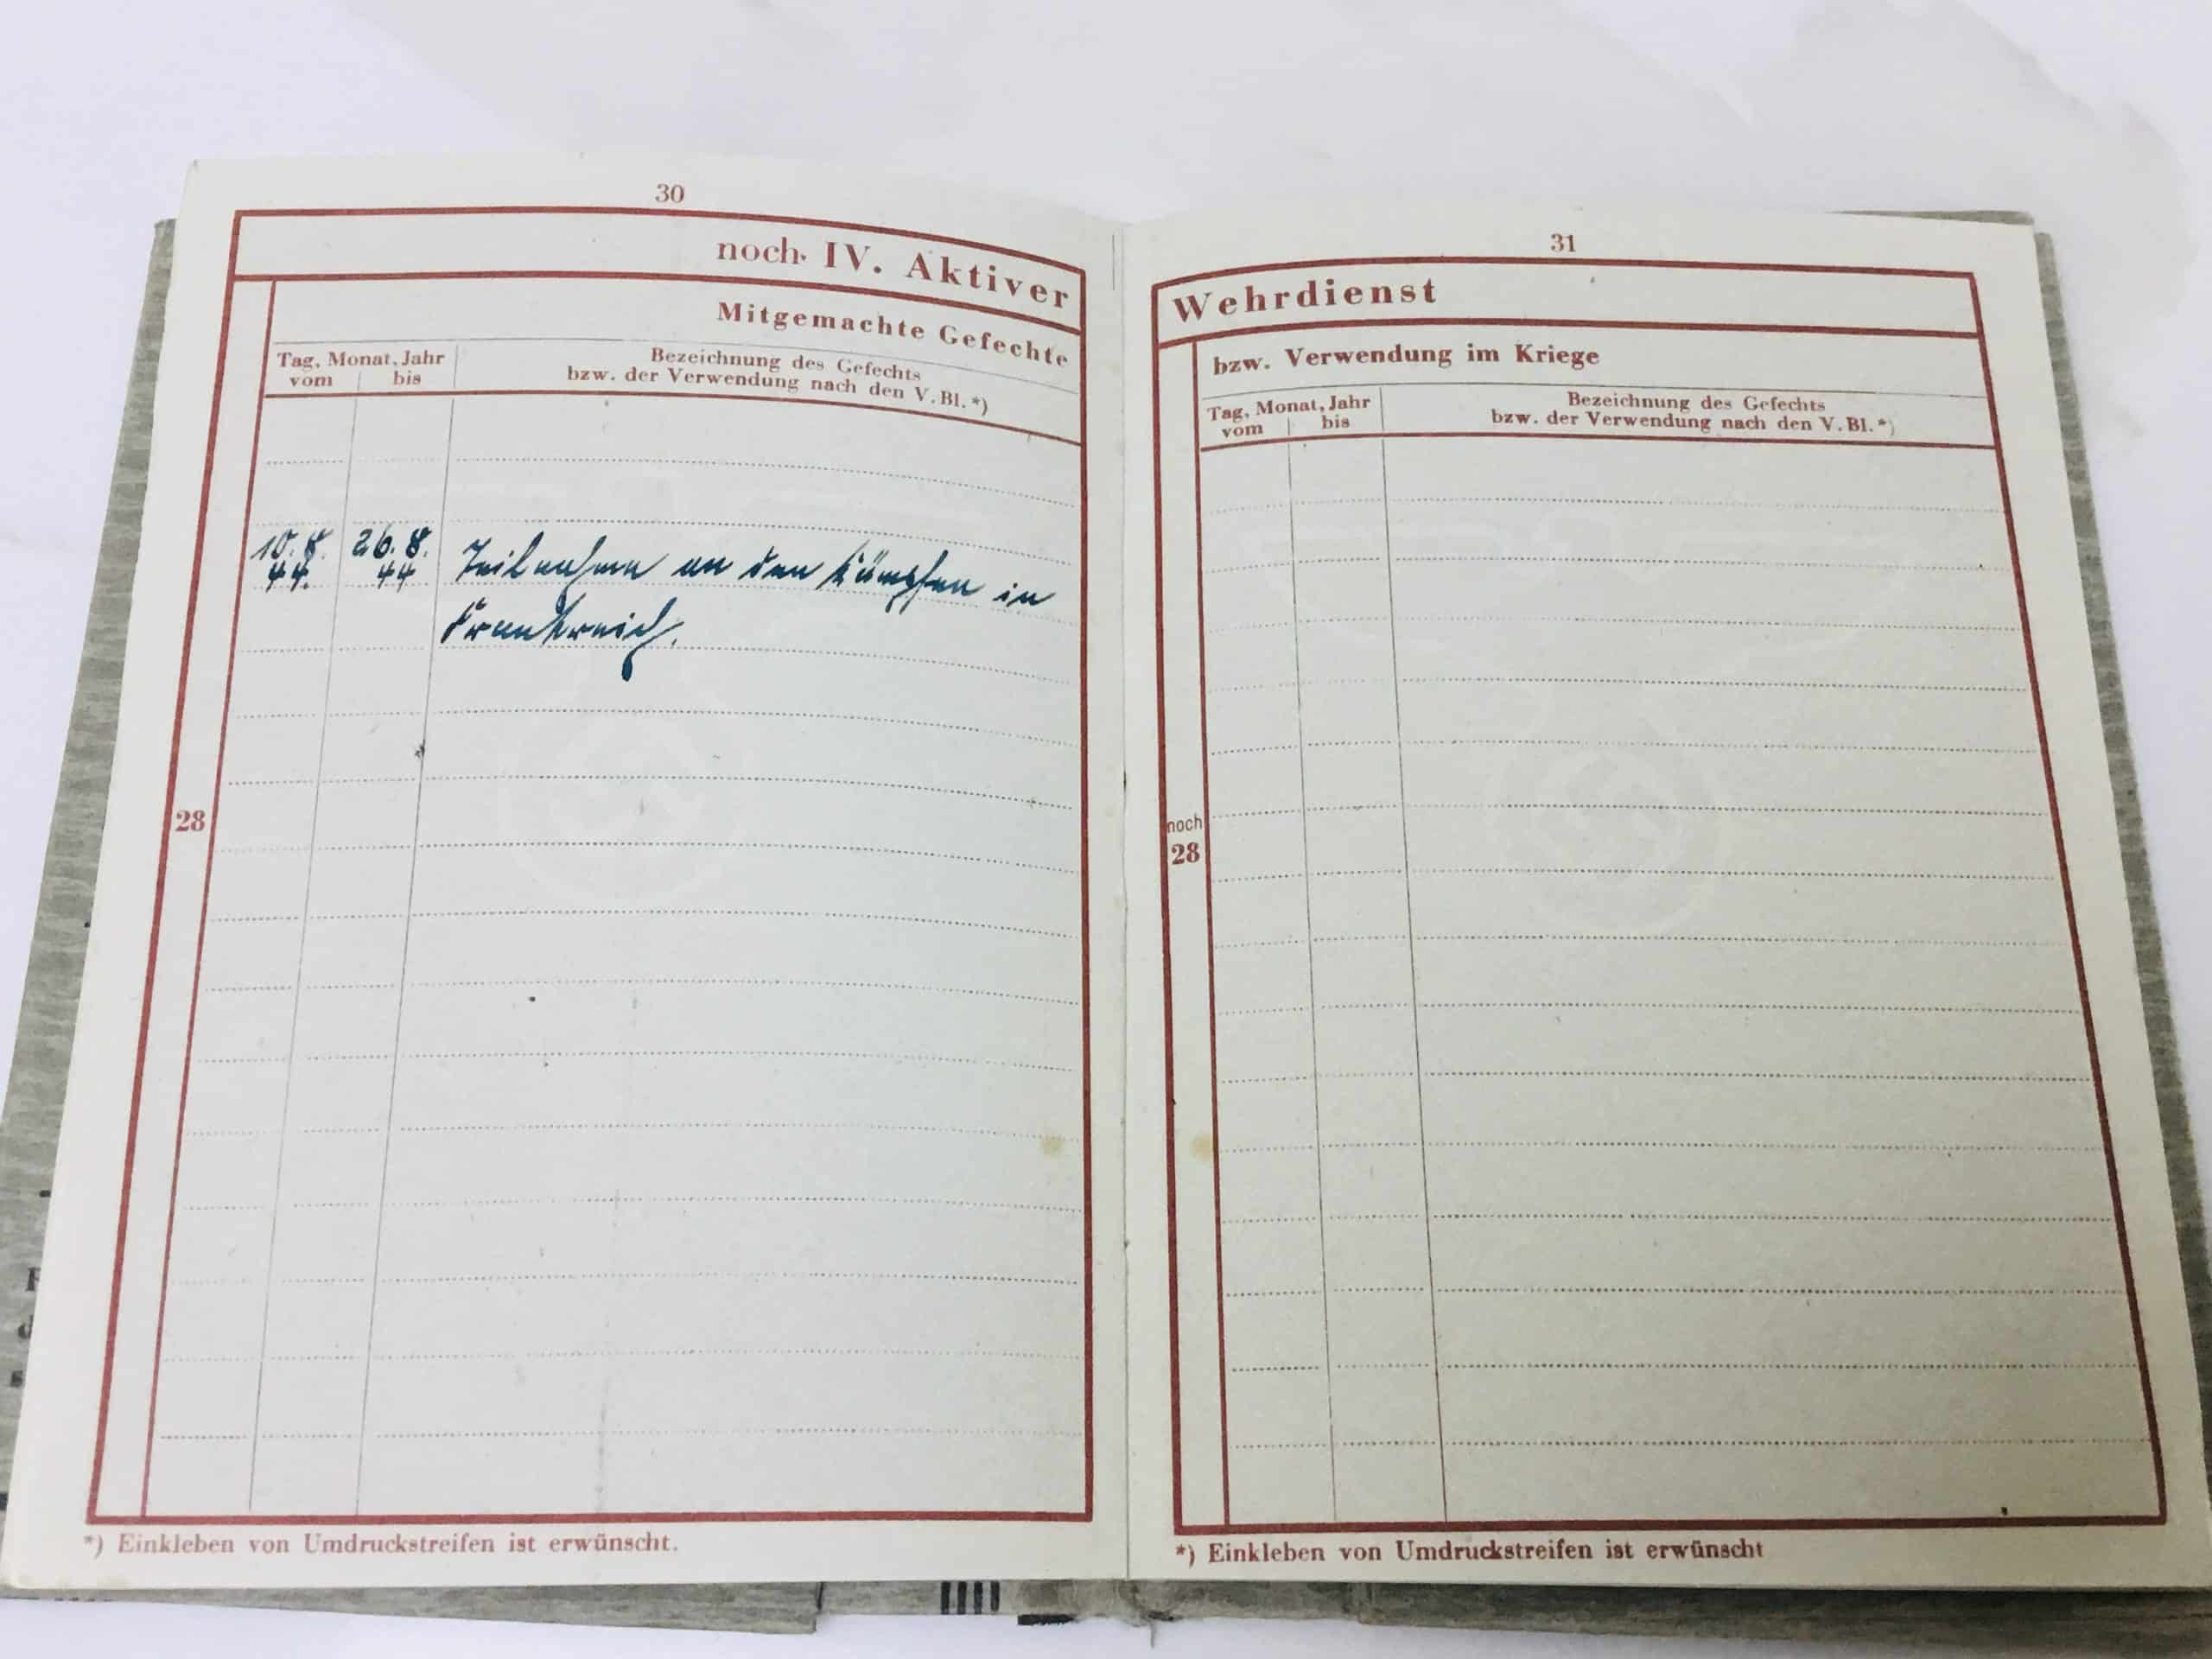 30
noch IV. Aktiver
Mitgemachte Gefechte
Tag, Monat, Jahr
vom bis
Bezeichnung des Gefechts
bzw. der Verwendung nach den V.Bl.*)
10.8. 26.8. Teilnahme an den Kämpfen in
44. 44
Frankreich.
28
*) Einkleben von Umdruckstreifen ist erwünscht.
31
Wehrdienst
bzw. Verwendung im Kriege
Tag, Monat, Jahr
vom bis
Bezeichnung des Gefechts
bzw. der Verwendung nach den V.Bl.*)
noch
28
*) Einkleben von Umdruckstreifen ist erwünscht